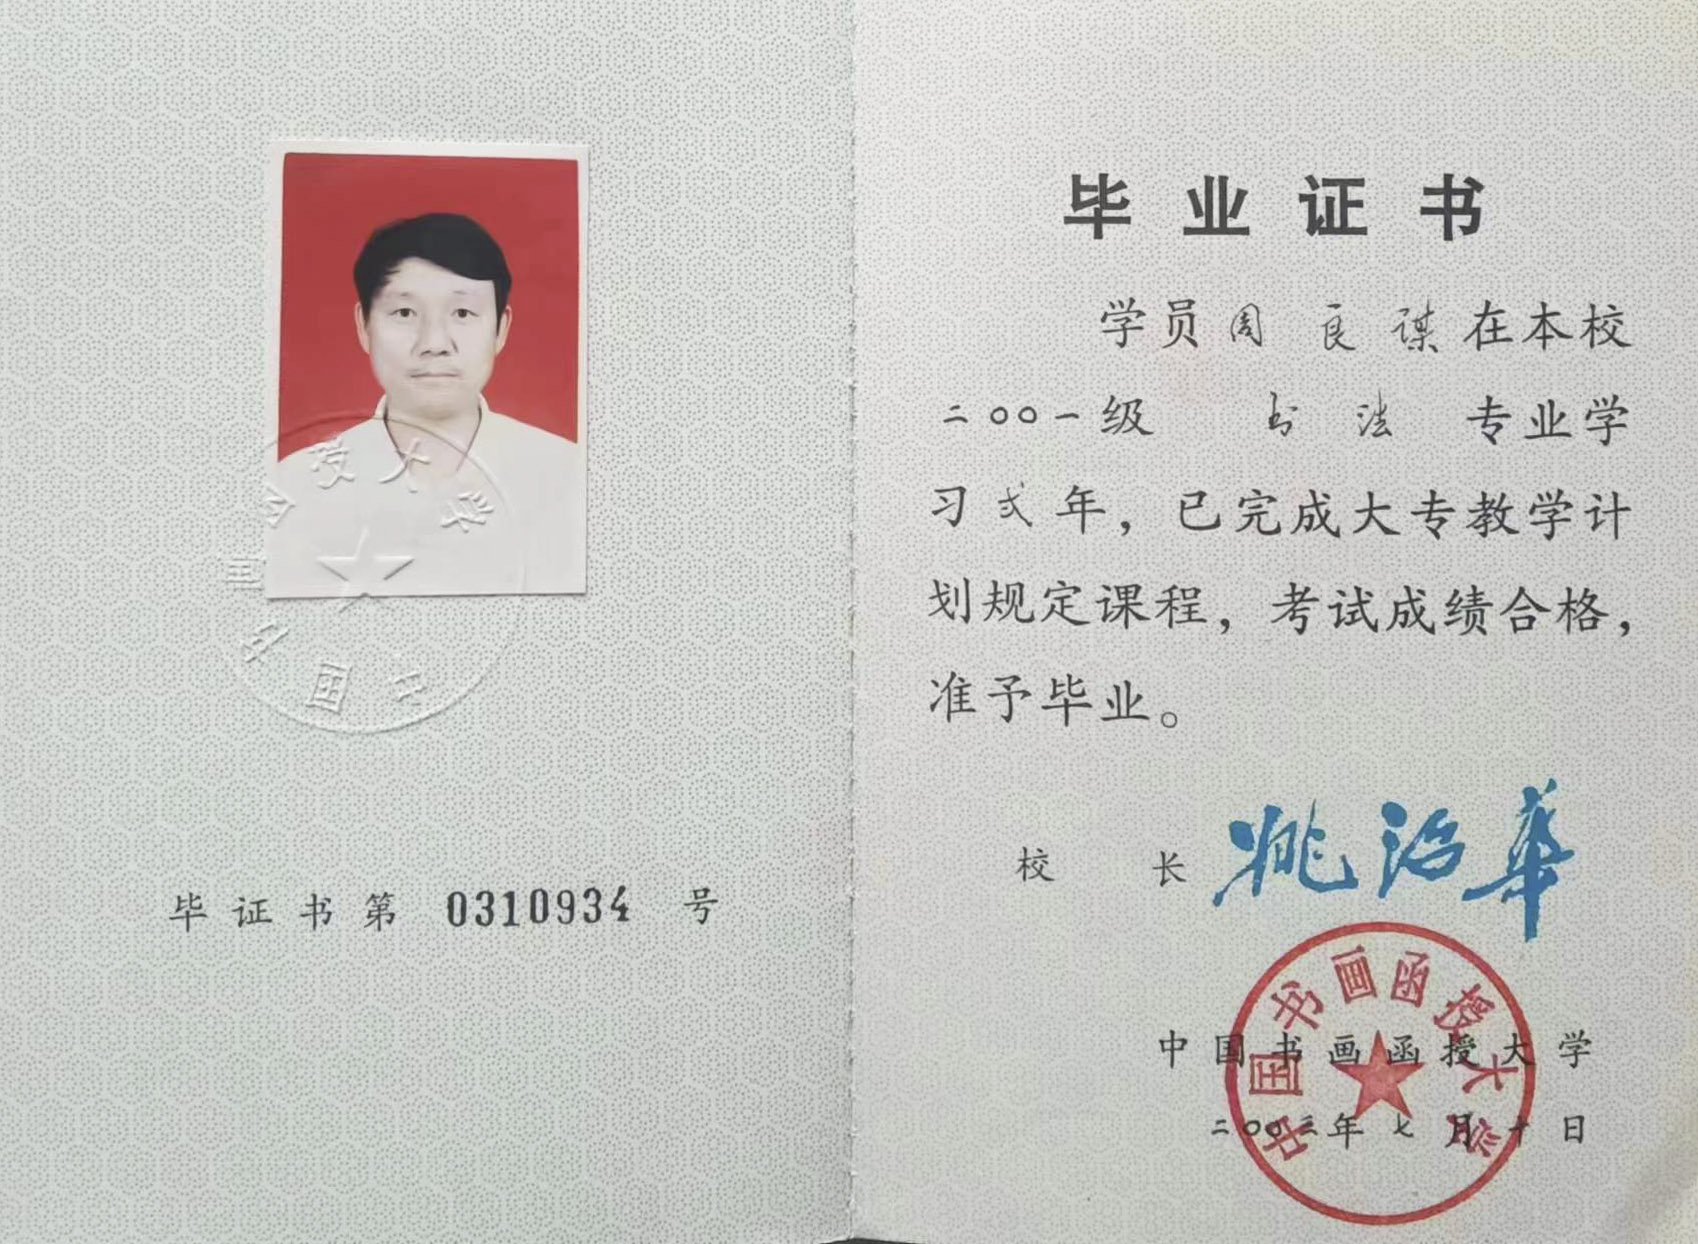 毕证书第 0310934 号
毕业证书
学员周良谋在本校
二〇〇一级 书法 专业学
习弍年，已完成大专教学计
划规定课程，考试成绩合格，
准予毕业。
校 长 姚治華
中国书画函授大学
二〇〇三年七月十日
中国书画函授大学